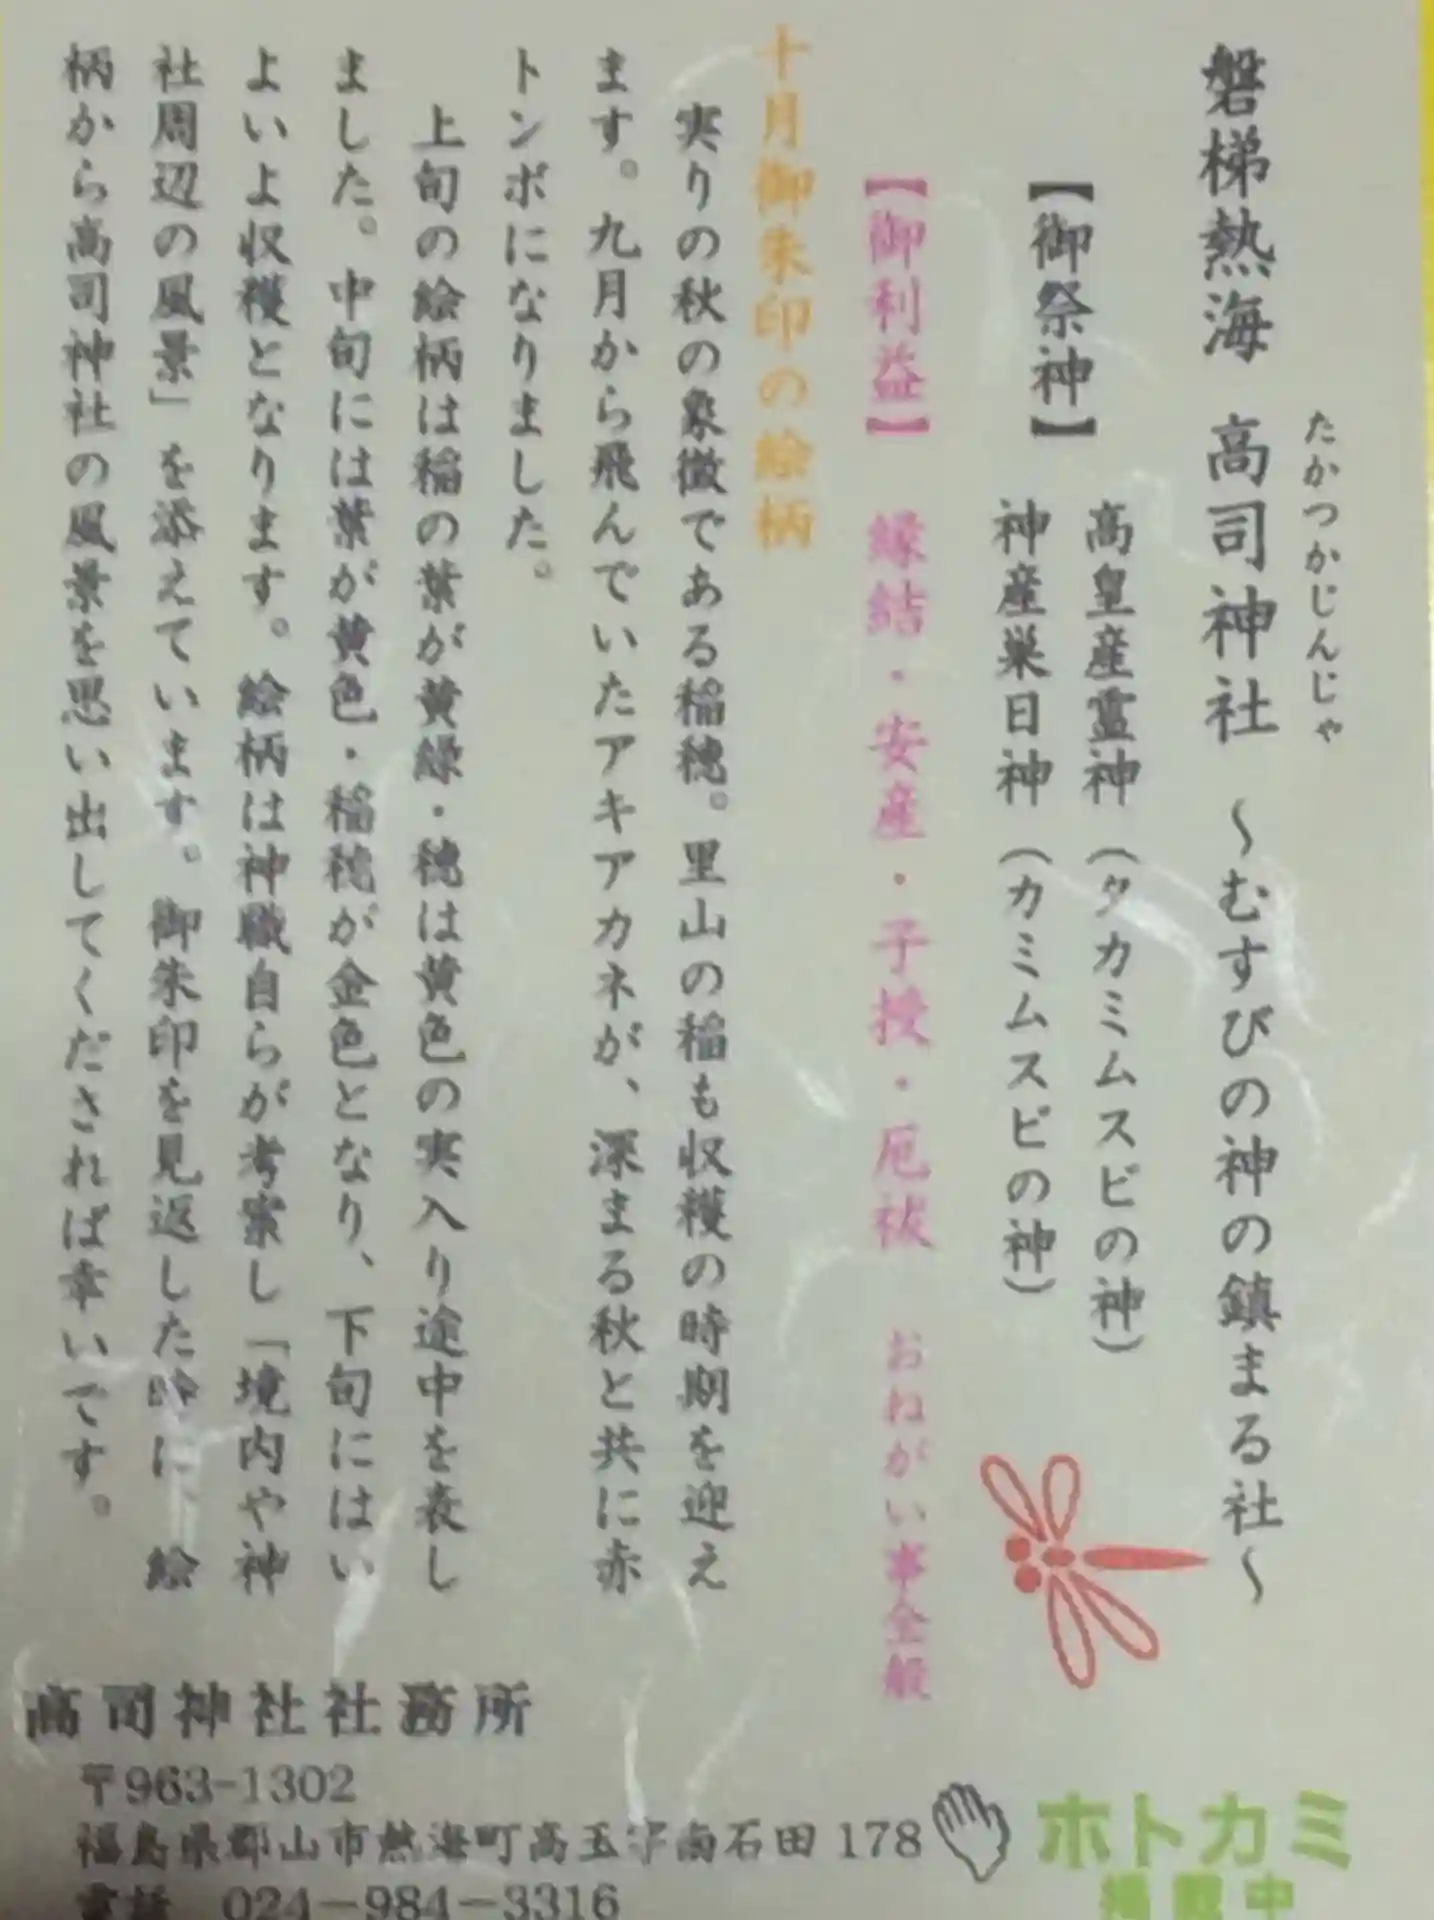 たかつかじんじゃ
磐梯熱海 高司神社 ～むすびの神の鎮まる社～
【御祭神】
高皇産霊神（タカミムスビの神）
神産巣日神（カミムスビの神）
【御利益】 縁結・安産・子授・厄祓 おねがい事全般
十月御朱印の絵柄
実りの秋の象徴である稲穂。里山の稲も収穫の時期を迎え
ます。九月から飛んでいたアキアカネが、深まる秋と共に赤
トンボになりました。
上旬の絵柄は稲の葉が黄緑・穂は黄色の実入り途中を表し
ました。中旬には葉が黄色・稲穂が金色となり、下旬にはい
よいよ収穫となります。絵柄は神職自らが考案し「境内や神
社周辺の風景」を添えています。御朱印を見返した時に、絵
柄から高司神社の風景を思い出してくだされば幸いです。
高司神社社務所
〒963-1302
福島県郡山市熱海町高玉字南石田178
電話 024－984－3316
ホトカミ
掲載中